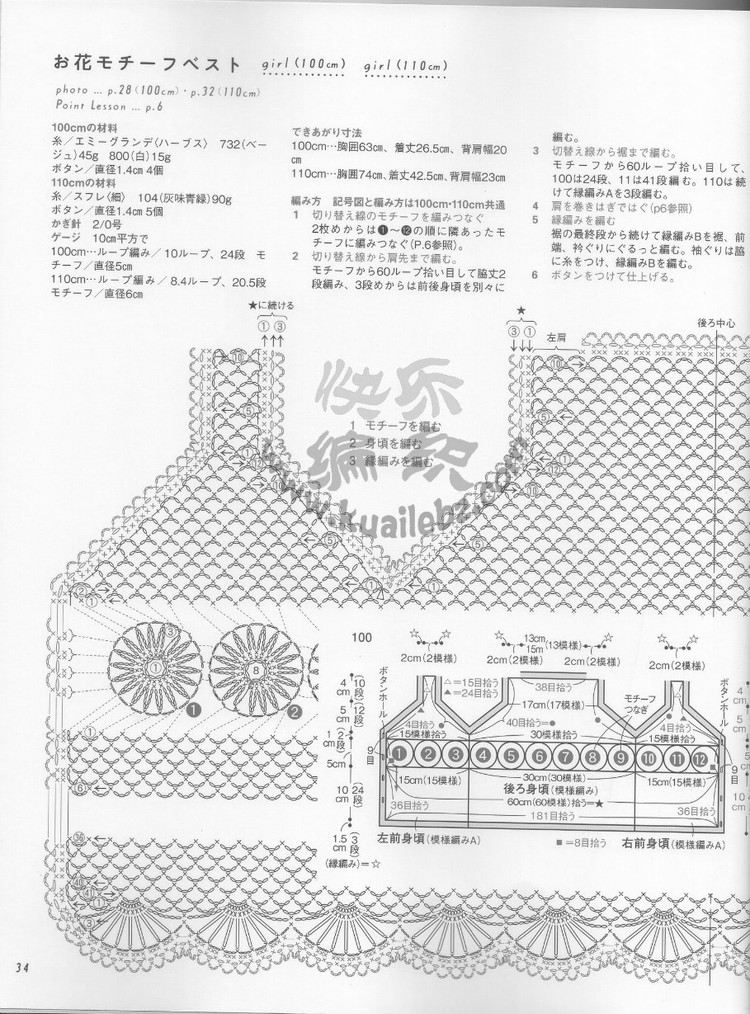 お花モチーフベスト girl(100cm) girl(110cm)
photo … p.28(100cm)・p.32(110cm)
Point Lesson … p.6
100cmの材料
糸／エミーグランデ〈ハーブス〉 732(ベー
ジュ)45g 800(白)15g
ボタン／直径1.4cm 4個
110cmの材料
糸／スフレ〈細〉 104(灰味青緑)90g
ボタン／直径1.4cm 5個
かぎ針 2/0号
ゲージ 10cm平方で
100cm…ループ編み／10ループ、24段 モ
チーフ／直径5cm
110cm…ループ編み／8.4ループ、20.5段
モチーフ／直径6cm
できあがり寸法
100cm…胸囲63cm、着丈26.5cm、背肩幅20
cm
110cm…胸囲74cm、着丈42.5cm、背肩幅23cm
編み方 記号図と編み方は100cm・110cm共通
1 切り替え線のモチーフを編みつなぐ
2枚めからは❶〜⓬の順に隣あったモ
チーフに編みつなぐ(P.6参照)。
2 切り替え線から肩先まで編む。
モチーフから60ループ拾い目して脇丈2
段編み、3段めからは前後身頃を別々に
編む。
3 切替え線から裾まで編む。
モチーフから60ループ拾い目して、
100は24段、11は41段編む。110は続
けて縁編みAを3段編む。
4 肩を巻きはぎではぐ(p6参照)
5 縁編みを編む
裾の最終段から続けて縁編みBを裾、前
端、衿ぐりにぐるっと編む。袖ぐりは脇
に糸をつけ、縁編みBを編む。
6 ボタンをつけて仕上げる。
★に続ける
① ③
★
③ ①
左肩
後ろ中心
⑩
⑩
⑤
⑤
快乐
编织
www.kuailebz.com
1 モチーフを編む
2 身頃を編む
3 縁編みを編む
⑩
⑤
⑤
②
①
①
②
①
③
①
8
❶
❷
①
⑤
⑥
㊱
㊵
①
③
100
☆ ☆ ☆
13cm(13模様)
15m
2cm(2模様) 2cm(2模様) 2cm(2模様) 2cm(2模様)
ボタンホール
ボタンホール
△=15目拾う
▲=24目拾う
38目拾う
17cm(17模様)
モチーフ
つなぎ
4目拾う
40目拾う=●
4目拾う
15模様拾う 30模様拾う 15模様拾う
9目
❶ ❷ ❸ ❹ ❺ ❻ ❼ ❽ ❾ ❿ ⓫ ⓬
9目
15cm(15模様) 30cm(30模様) 15cm(15模様)
後ろ身頃(模様編み)
60cm(60模様)拾う=★
36目拾う 181目拾う 36目拾う
左前身頃(模様編みA) ■=8目拾う 右前身頃(模様編みA)
4cm(10段)
5cm(12段)
1cm(2段)
5cm
10cm(24段)
1.5cm(3段)
(縁編み)=☆
34